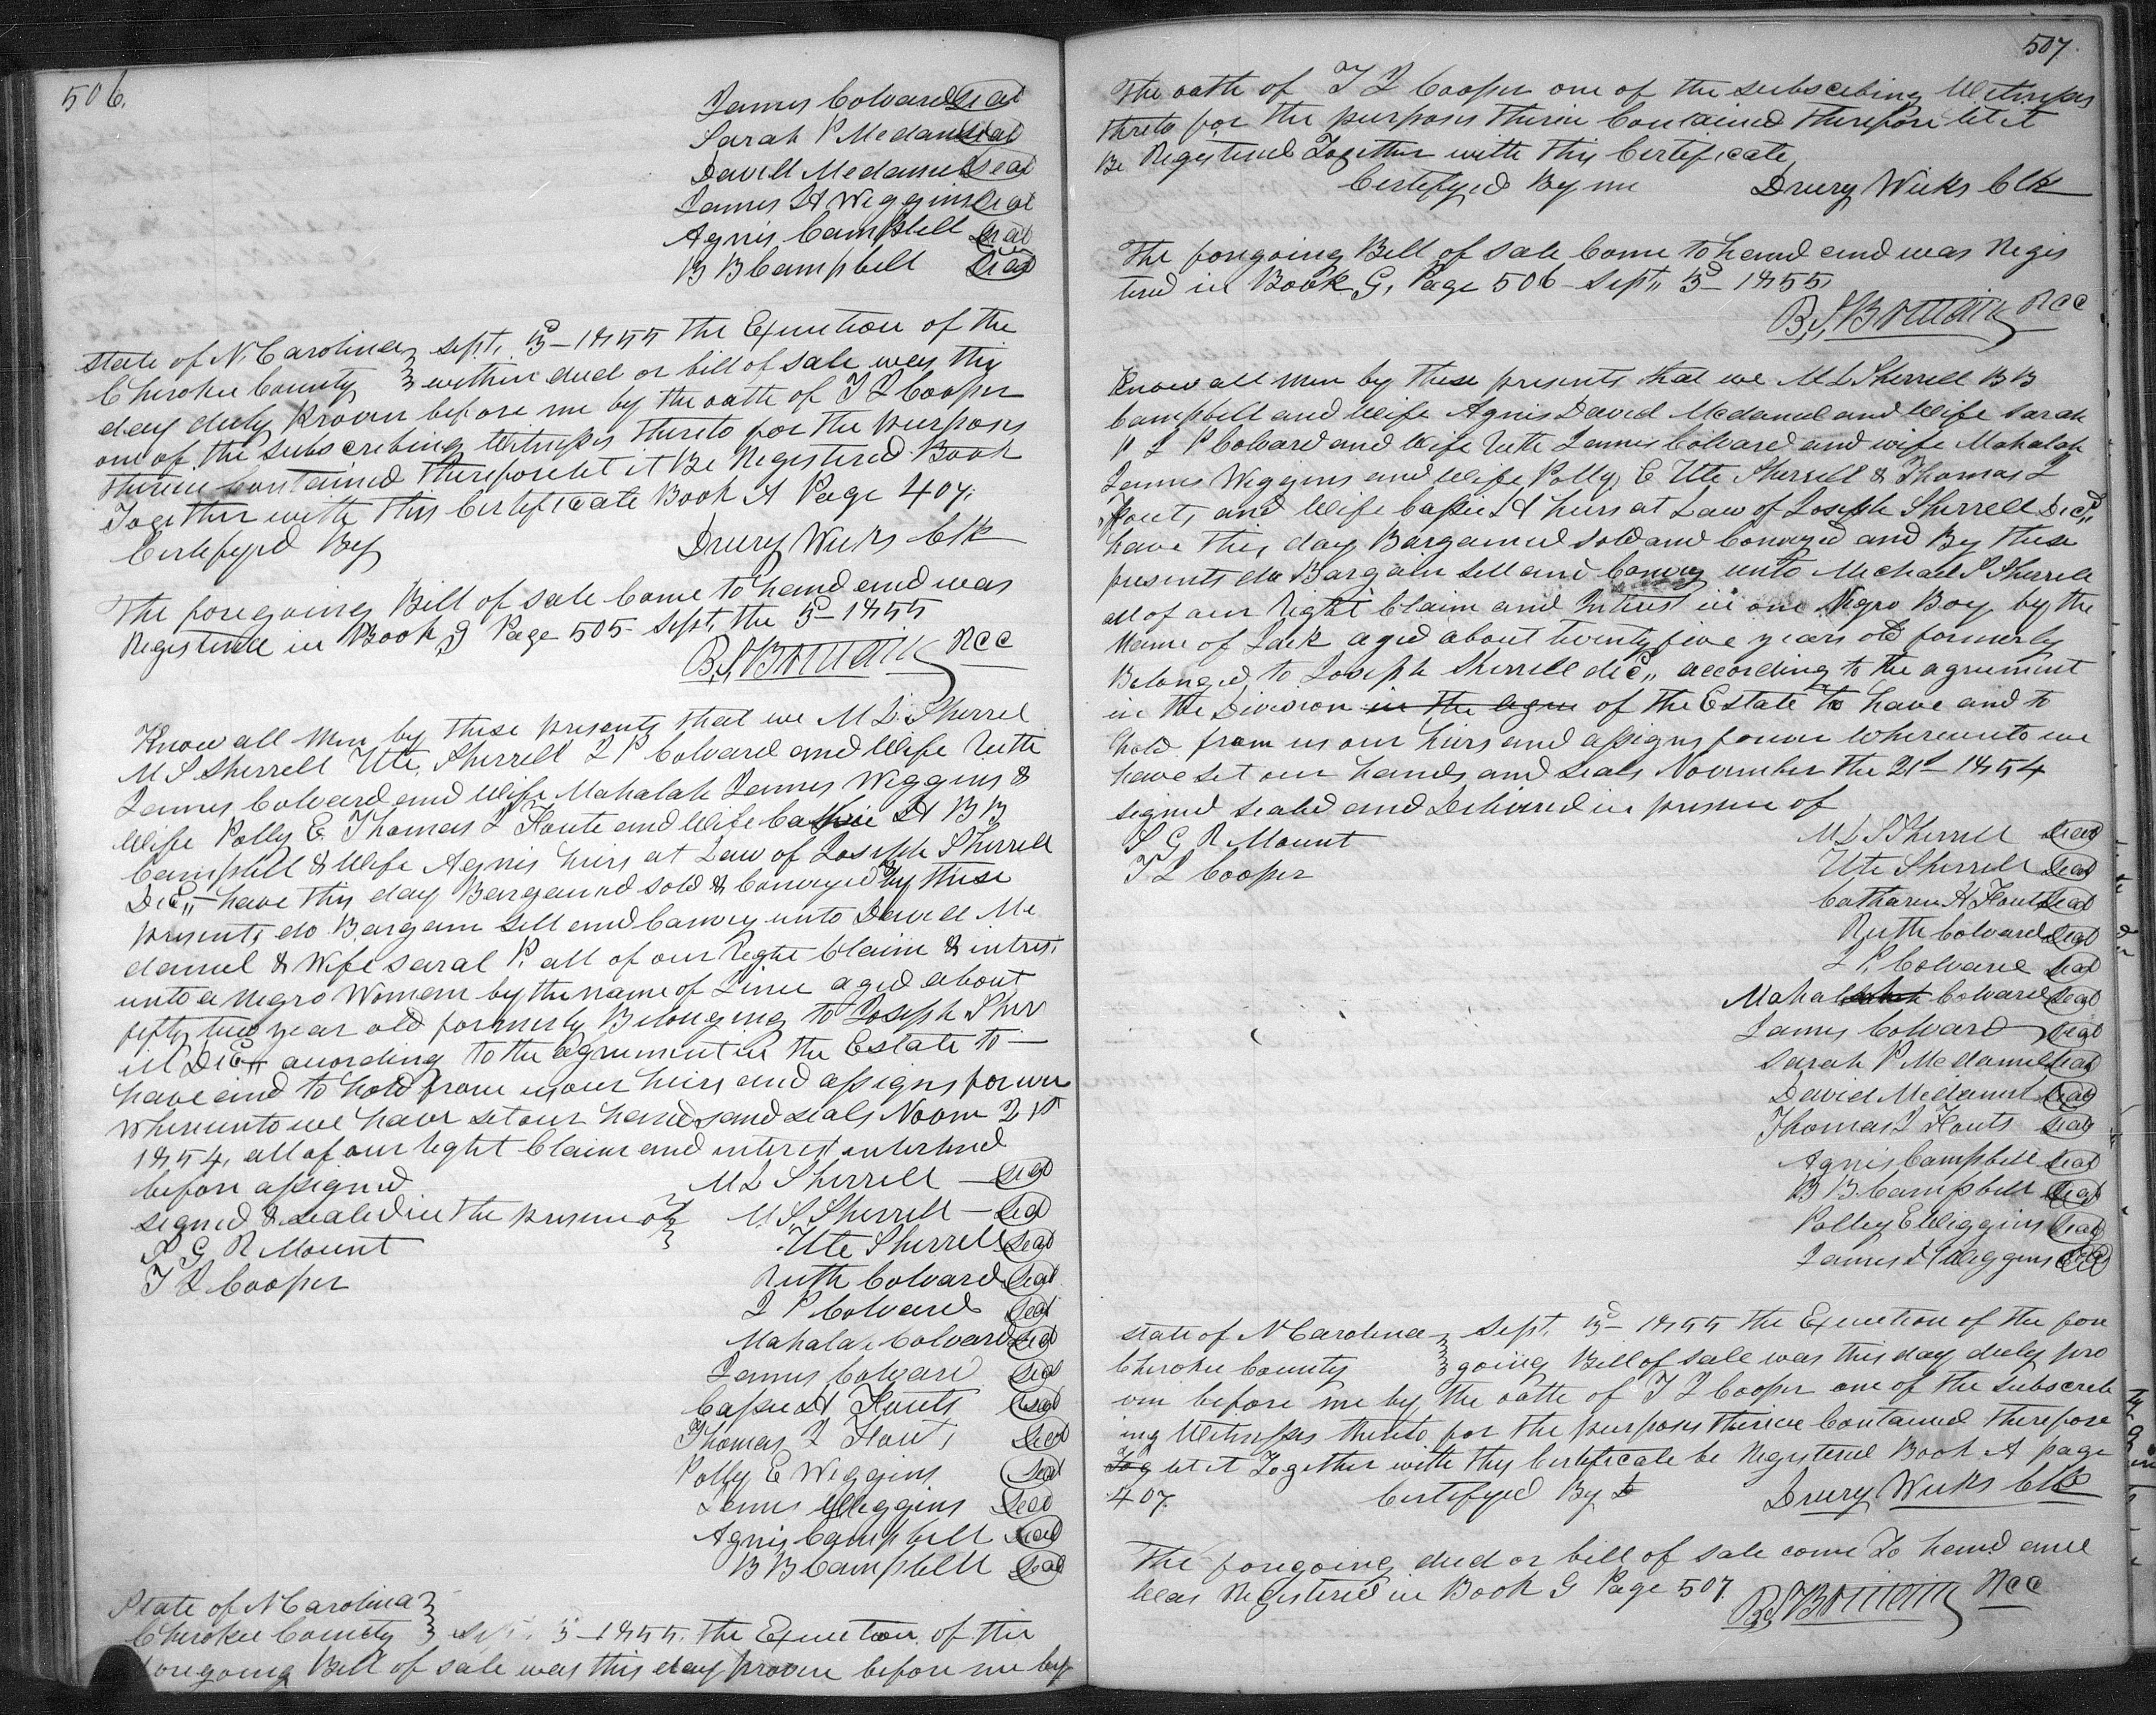 506.
James Colvard Seal
Sarah P Mcdaniel Seal
David Mcdaniel Seal
James H Wiggins Seal
Agnis Campbell Seal
B B Campbell Seal
State of N. Carolina Sept. 3d 1855 The Execution of the
Cherokee County within deed or bill of sale was this
day duly Proven before me by the oath of T L Cooper
one of the subscribing Witnesses thereto for the purposes
therein Contained therefore let it Be Registered Book
Together with this Certificate Book A Page 407.
Certifyed By Drury Weeks Clk
The foregoing Bill of sale Come to hand and was
Registered in Book G Page 505 Sept, the 3d 1855
RCC
Know all Men by these presents that we M L Sherrel
M S Sherrell Ute, Sherrell L P Colvard and Wife Ruth
James Colvard and Wife Mahalah James Wiggins &
Wife Polly E Thomas L Fouts and Wife Cassie H B B
Campbell & Wife Agnis heirs at Law of Joseph Sherrell
Decd,, have this day Bargained sold & Conveyed By these
presents do Bargain sell and Convey unto David Mc
daniel & Wife Saral P. all of our Right Claim & intres,
unto a Negro Woman by the name of Line aged about
fifty two year old formerly Belonging to Joseph Sherr
ill Decd,, acording to the agrement in the Estate to
have and to hold from us our heirs and assigns forever
whereunto we have set our hands and seals Novm 21st
1854, all of our right Claim and interest enterlined
before assigned M L Sherrell Seal
signed & sealed in the presence of M. S. Sherrell Seal
S G R Mount Ute Sherrell Seal
T L Cooper Ruth Colvard Seal
L P Colvard Seal
Mahala Colvard Seal
James Colvard Seal
Cassie H Fouts Seal
Thomas L Fouts Seal
Polly E Wiggins Seal
James Wiggins Seal
Agnis Campbell Seal
B B Campbell Seal
State of N Carolina
Cherokee County Sept. 3d 1855. The Execution of the
foregoing Bill of sale was this day proven before me by
507.
The oath of T L Cooper one of the subscribing Witnesses
thereto for the purposes therein Contained therefore let it
Be Registered Together with this Certificate
Certifyed By me Drury Weeks Clk
The foregoing Bill of sale Come to hand and was Regis
tered in Book G, Page 506 Sept,, 3d 1855
RCC
Know all men by these presents that we M L Sherrell B B
Campbell and Wife Agnis David Mcdaniel and Wife Sarah
P L P Colvard and Wife Ruth James Colvard and wife Mahalah
James Wiggins and Wife Polly E Ute Sherrell & Thomas L
Fouts, and Wife Cassie H heirs at Law of Joseph Sherrell Decd,,
have this day Bargained sold and Conveyed and By these
presents do Bargain sell and Convey unto Michael S Sherrell
all of our Right Claim and Intrest in one Negro Boy by the
Name of Jack aged about twenty five years old formerly
Belonged to Joseph Sherrell dec,, according to the agreement
in the Division in the agree of the Estate to have and to
hold from us our heirs and assigns forever Whereunto we
have set our hands and seals November the 21st 1854
signed sealed and Delivered in presence of
S G R Mount M L Sherrell Seal
T L Cooper Ute Sherrell Seal
Catharine H Fouts Seal
Ruth Colvard Seal
L P. Colvard Seal
Mahal Colvard Seal
James Colvard Seal
Sarah P Mcdaniel Seal
David Mcdaniel Seal
Thomas L Fouts Seal
Agnis Campbell Seal
B B Campbell Seal
Polley E Wiggins Seal
James H Wiggins Seal
State of N Carolina Sept. 3d 1855 the Execution of the fore
Cherokee County going Bill of sale was this day duly pro
ven before me by the oath of T L Cooper one of the subscrib
ing Witnesses thereto for the purposes therein Contained therefore
Tog let it Together with this Certificate be Registered Book A page
407. Certifyed By Drury Weeks Clk
The foregoing deed or bill of sale come To hand and
Was Registered in Book G Page 507.
RCC